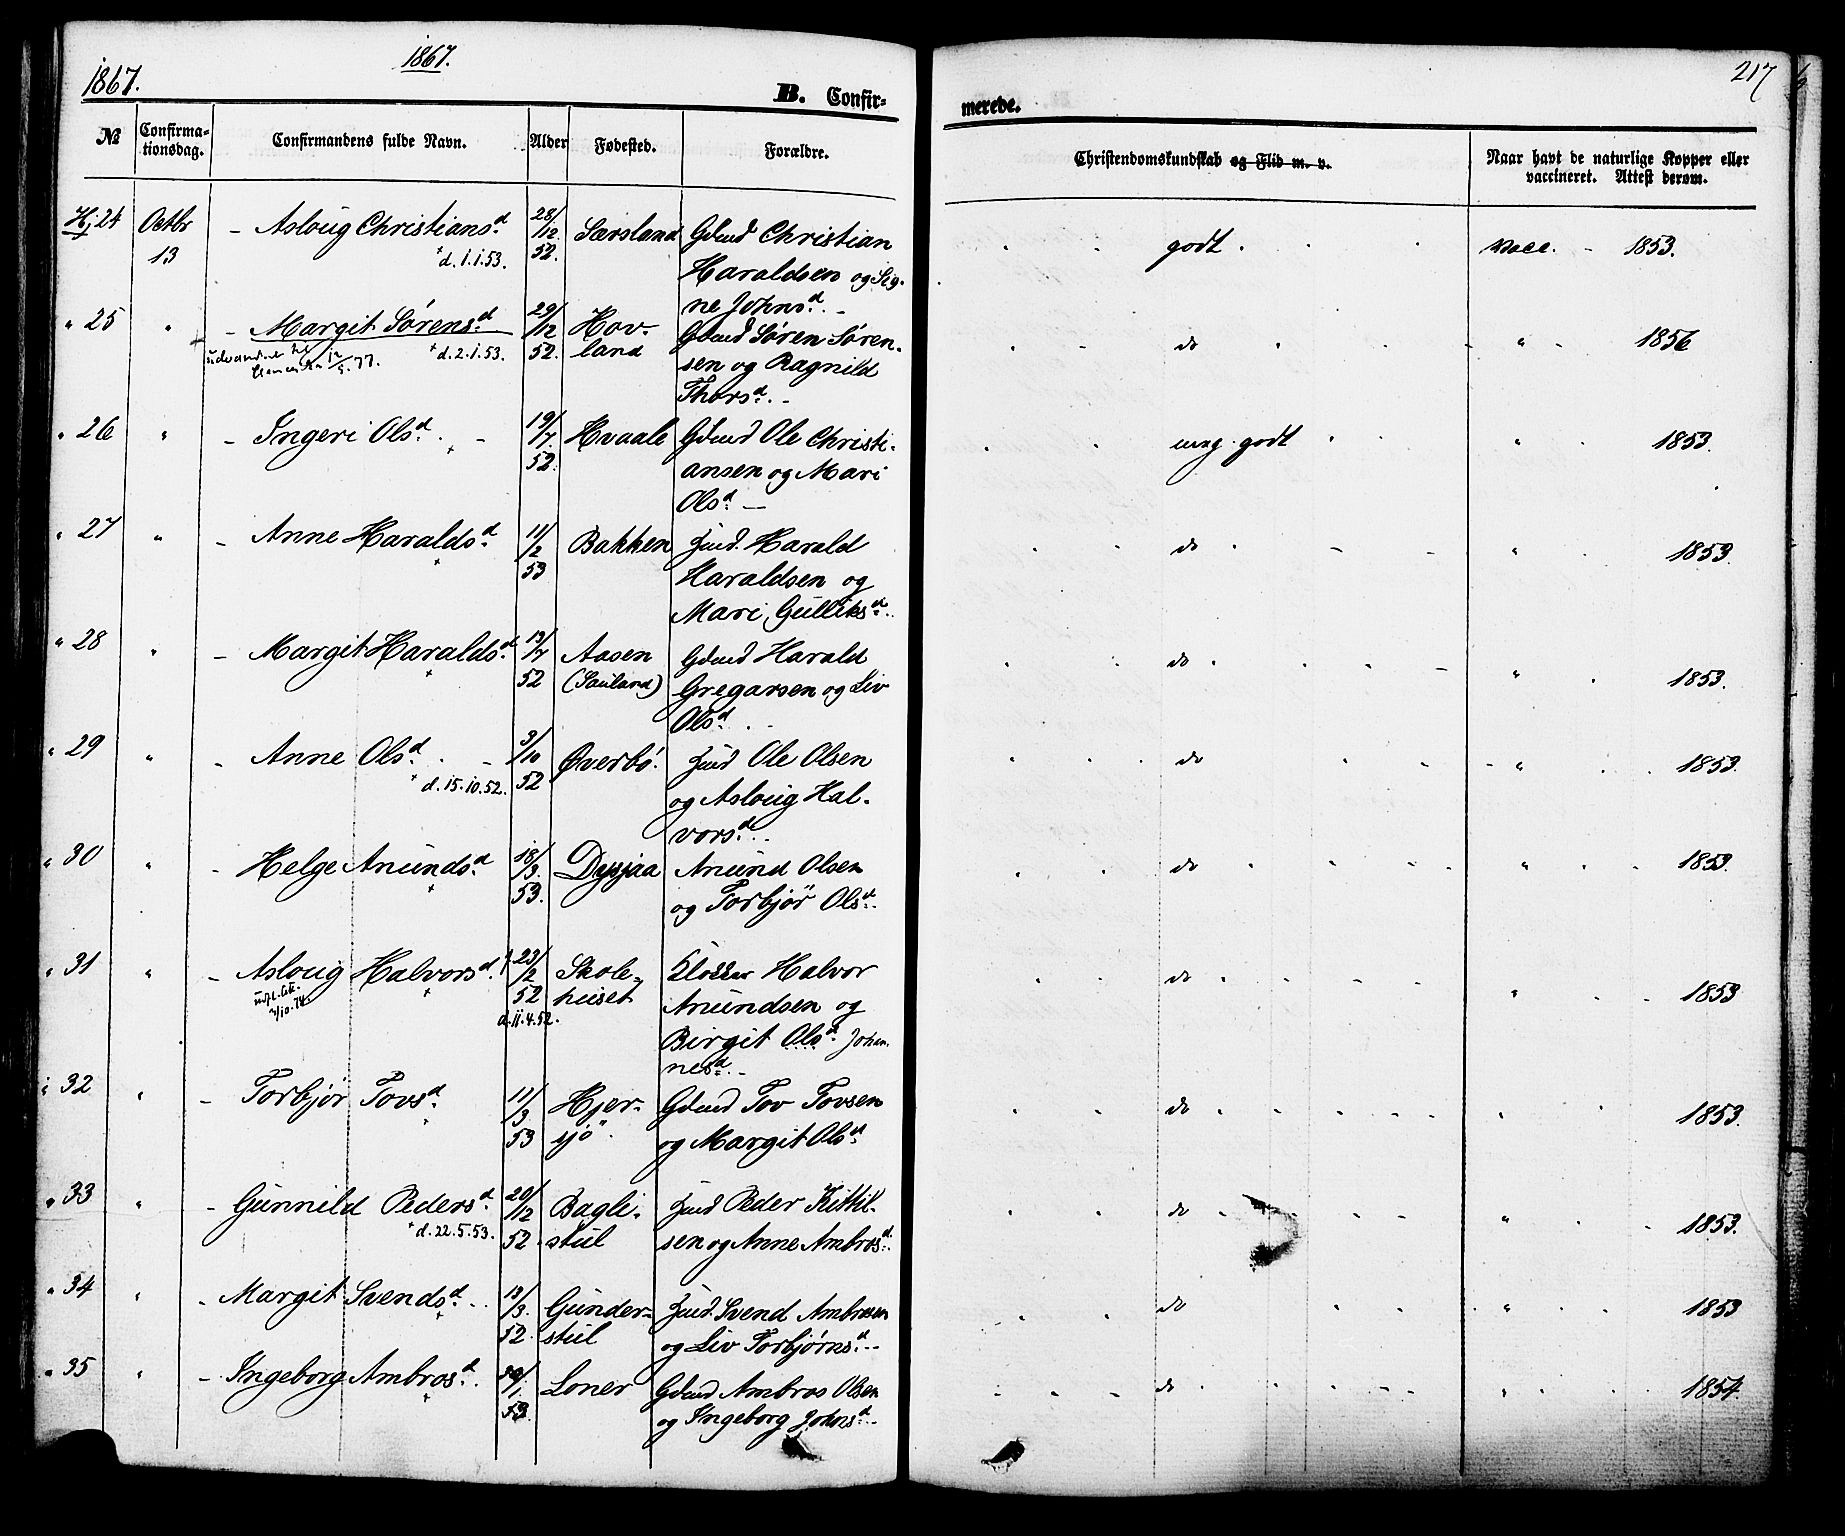 1867.
1867.
B. Confir-
merede.
217
№ Confirma-tionsdag. Confirmandens fulde Navn. Alder Fødested. Forældre. Christendomskundskab og Flid m. v. Naar havt de naturlige Kopper eller vaccineret. Attest derom.
Hj 24 Octbr 13 – Asloug Christiansd. 28/12 52. Særsland Gdmd Christian godt vacc. – 1853.
+ d. 1.1.53. Haraldsen og Sig-
ne Johnsd. –
" 25 " – Margit Sørensd. 29/12 52. Hov- Gdmd Søren Søren- do " 1856
+ d. 2.1.53. land sen og Ragnild
Thorsd. –
" 26 " – Ingeri Olsd. + – 19/7 52. Hvaale Gdmd Ole Christi- meg. godt " 1853.
ansen og Mari
Olsd. –
" 27 " – Anne Haraldsd. + 11/2 53 Bakken Hmd. Harald do " 1853.
Haraldsen og
Mari Gulliksd.
" 28 " – Margit Haraldsd. + 13/7 52 Aasen Gdmd Harald do " 1853.
(Sauland) Gregarsen og Liv
Olsd.
" 29 " – Anne Olsd. – 3/10 52 Øverbö. Hmd Ole Olsen do " 1853.
+ d. 15.10.52. og Asloug Hal-
vorsd.
" 30 " – Helge Anundsd. + 18/3. 53. Dysjaa Anund Olsen do " 1853.
og Torbjör Olsd.
" 31 " – Asloug Halvorsd. + 23/2 52 Skole- Klokker Halvor do " 1853
d. 11.4.52. huset Anundsen og
Birgit Olsd. Johan-
nesd. –
" 32 " – Torbjør Tovsd. + 11/3 53 Hjer- Gdmd Tov Tovsen do " 1853.
sjö og Margit Olsd.
" 33 " – Gunnild Pedersd. 20/12 52. Bagli- Hmd Peder Kittil- do " 1853.
+ d. 22.5.53. stul sen og Anne Ambrosd.
" 34 " – Margit Svendsd. + 13/3. 52. Gunder- Hmd. Svend Ambrosen do " 1853
stul og Liv Torbjørnsd. –
" 35 " – Ingeborg Ambrosd. + 30/1. 53. Loner Gdmd Ambros Olsen do " 1854.
og Ingeborg Johnsd. –